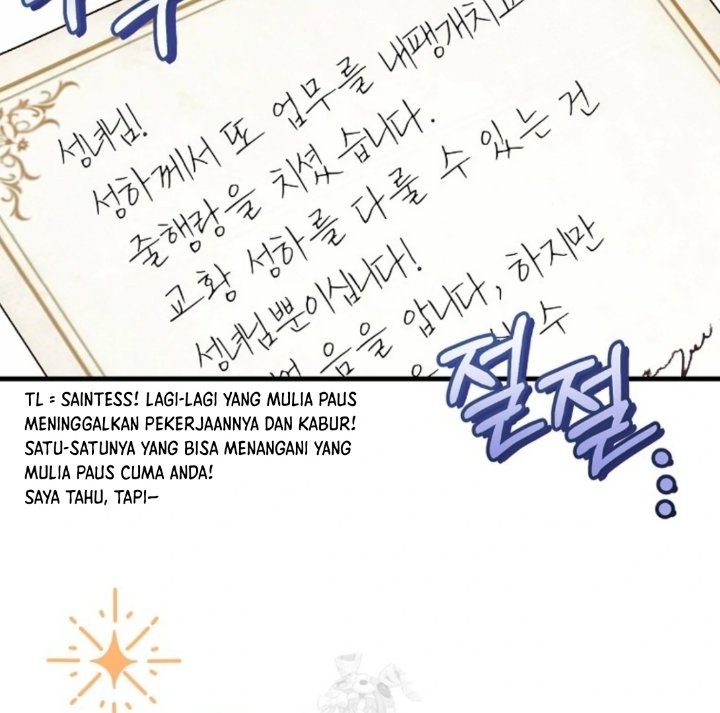 성녀님!
성하께서 또 업무를 내팽개치고
줄행랑을 치셨 습니다.
교황 성하를 다룰 수 있는 건
성녀님뿐이십니다!
음을 압니다, 하지만
수
절절...
TL = SAINTESS! LAGI-LAGI YANG MULIA PAUS
MENINGGALKAN PEKERJAANNYA DAN KABUR!
SATU-SATUNYA YANG BISA MENANGANI YANG
MULIA PAUS CUMA ANDA!
SAYA TAHU, TAPI–